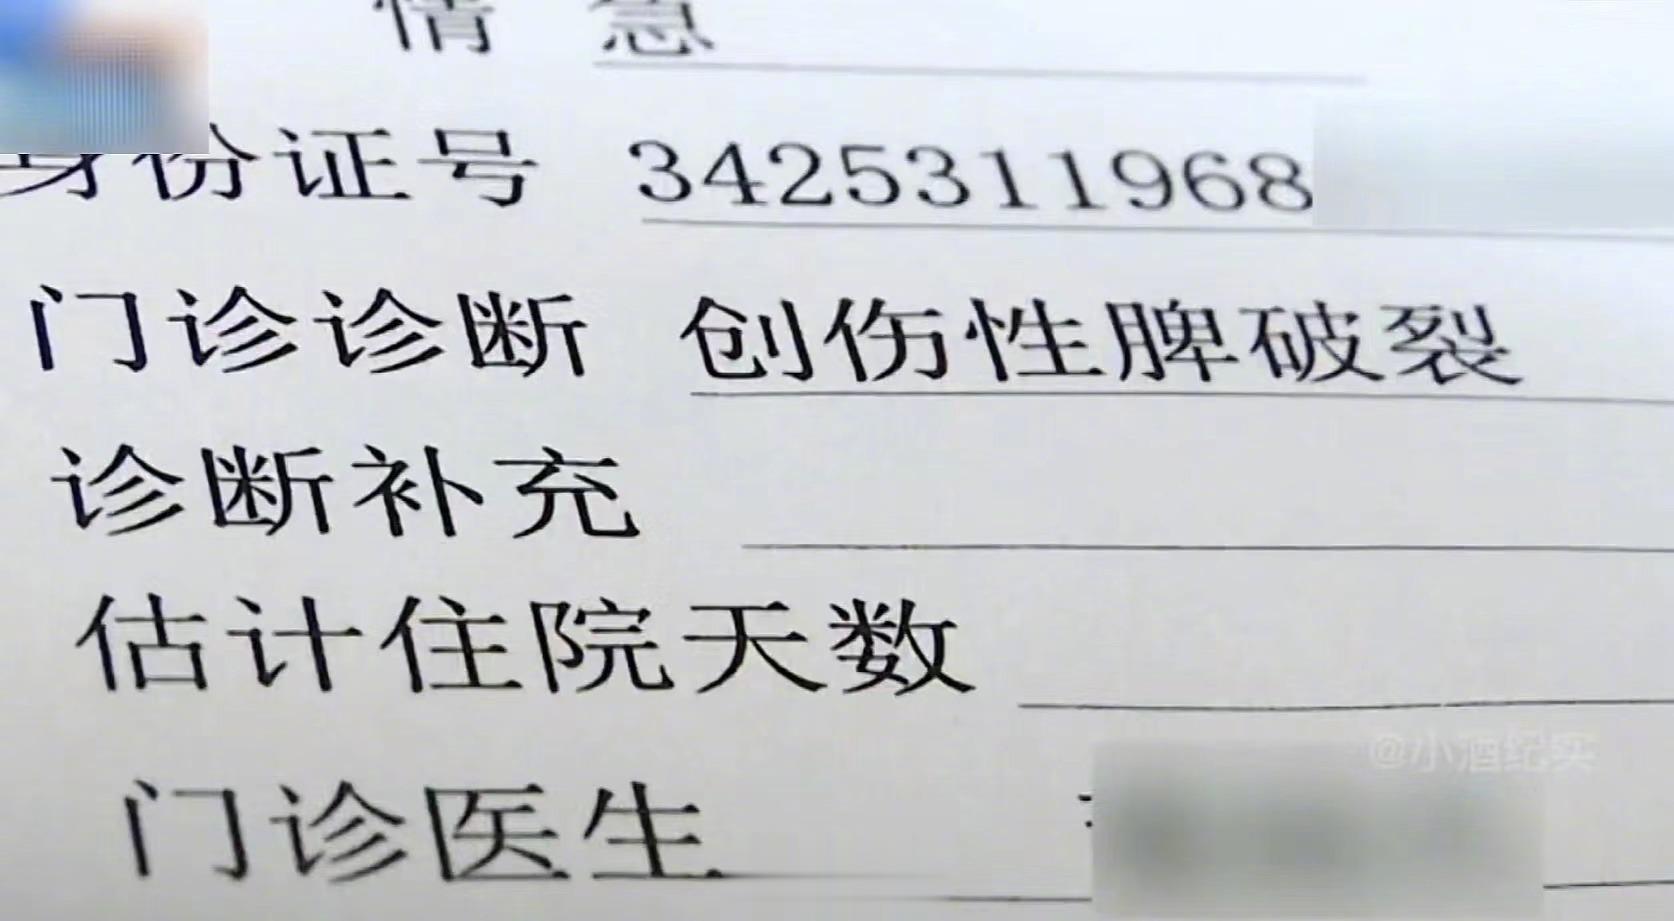 情 急
身份证号 3425311968
门诊诊断 创伤性脾破裂
诊断补充
估计住院天数
@小酒纪实
门诊医生